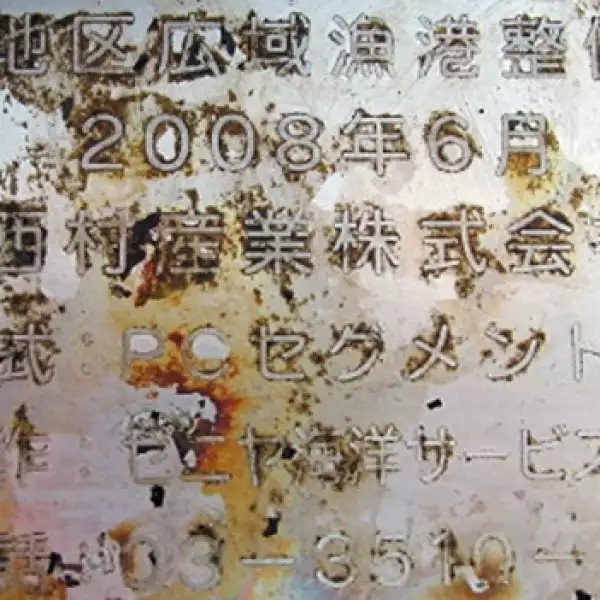 地区広域漁港整備
2008年6月
西村産業株式会社
式:PCセグメント
作:ゼニヤ海洋サービス
話:03-3510-